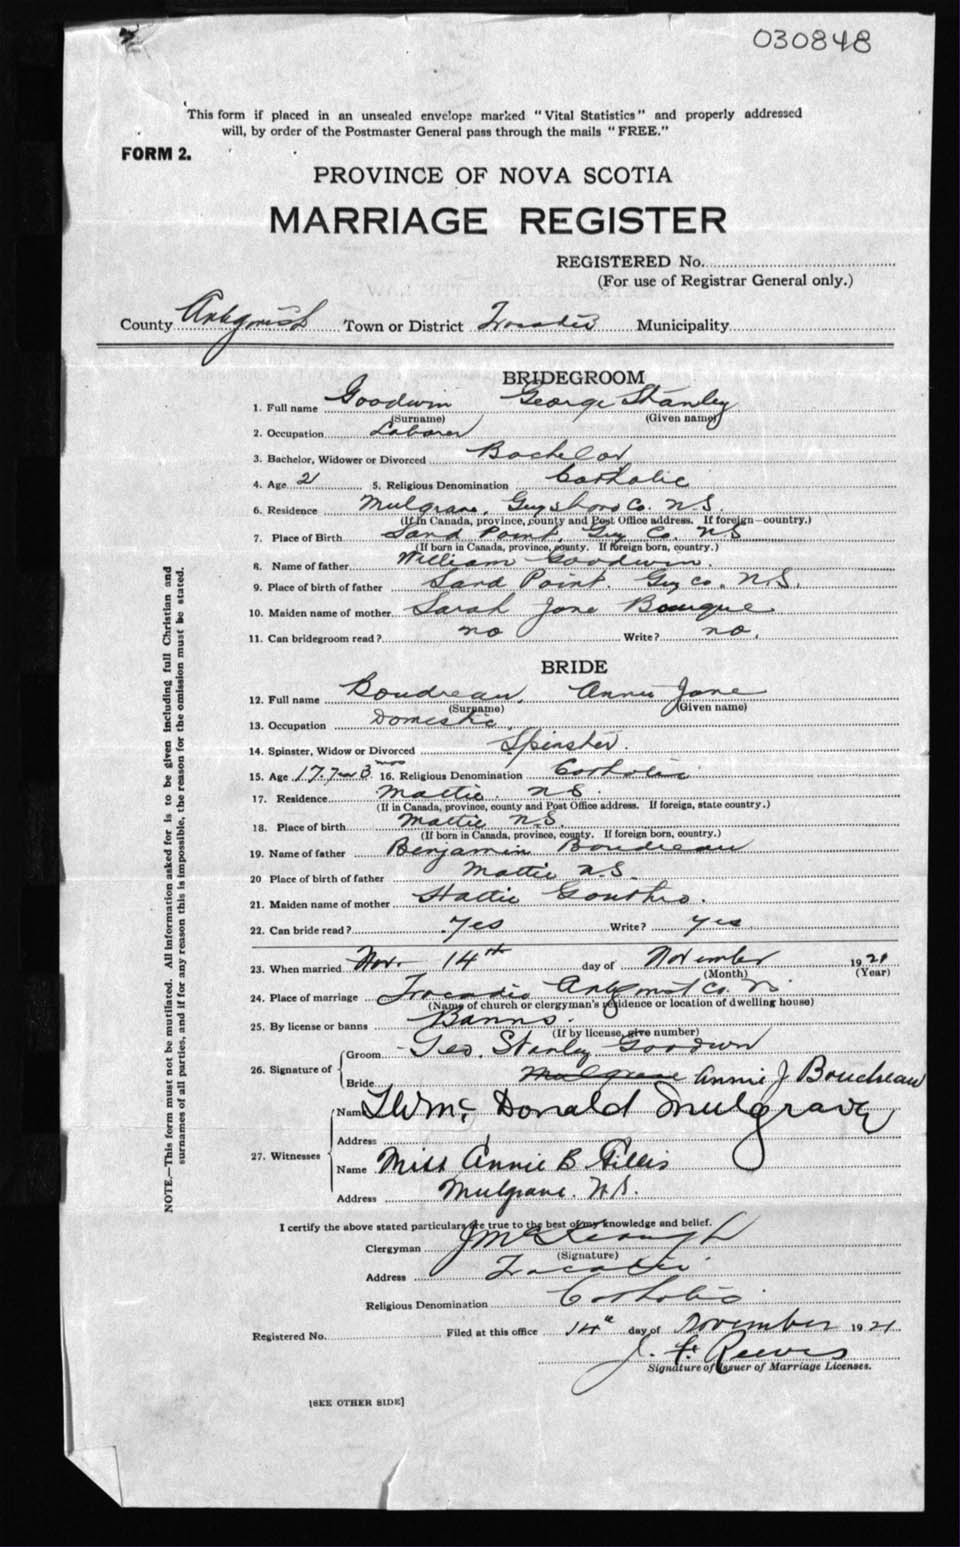 030848
This form if placed in an unsealed envelope marked "Vital Statistics" and properly addressed
will, by order of the Postmaster General pass through the mails "FREE."
FORM 2.
PROVINCE OF NOVA SCOTIA
MARRIAGE REGISTER
REGISTERED No.
(For use of Registrar General only.)
County Antigonish Town or District Tracadie Municipality
BRIDEGROOM
1. Full name Goodwin George Stanley
(Surname) (Given name)
2. Occupation Laborer
3. Bachelor, Widower or Divorced Bachelor
4. Age 21 5. Religious Denomination Catholic
6. Residence Mulgrave, Guysboro Co. N.S.
(If in Canada, province, county and Post Office address. If foreign—country.)
7. Place of Birth Sand Point, Guy Co. N.S.
(If born in Canada, province, county. If foreign born, country.)
8. Name of father William Goodwin.
9. Place of birth of father Sand Point. Guy Co. N.S.
10. Maiden name of mother Sarah Jane
11. Can bridegroom read? no Write? no.
BRIDE
12. Full name Boudreau, Annie Jane
(Surname) (Given name)
13. Occupation Domestic
14. Spinster, Widow or Divorced Spinster.
15. Age 17. 3 mos 16. Religious Denomination Catholic
17. Residence Mattie. N.S.
(If in Canada, province, county and Post Office address. If foreign, state country.)
18. Place of birth Mattie N.S.
(If born in Canada, province, county. If foreign born, country.)
19. Name of father Benjamin Boudreau
20 Place of birth of father Mattie N.S.
21. Maiden name of mother Hattie
22. Can bride read? yes Write? yes
23. When married Nov. 14th day of November 1921
(Month) (Year)
24. Place of marriage Tracadie Co. N.S.
(Name of church or clergyman's residence or location of dwelling house)
25. By license or banns Banns.
(If by license, give number)
26. Signature of
Groom Geo. Stanley Goodwin
Bride Mulgrave Annie J Boudreau
27. Witnesses
Name McDonald Mulgrave
Address
Name Miss Annie B. Gillis
Address Mulgrave. N.S.
I certify the above stated particulars are true to the best of my knowledge and belief.
Clergyman
(Signature)
Address Tracadie
Religious Denomination Catholic
Registered No. Filed at this office 14th day of November 1921
J. F. Reeves
Signature of Issuer of Marriage Licenses.
[SEE OTHER SIDE]
NOTE.—This form must not be mutilated. All information asked for is to be given including full Christian and
surnames of all parties, and if for any reason this is impossible, the reason for the omission must be stated.